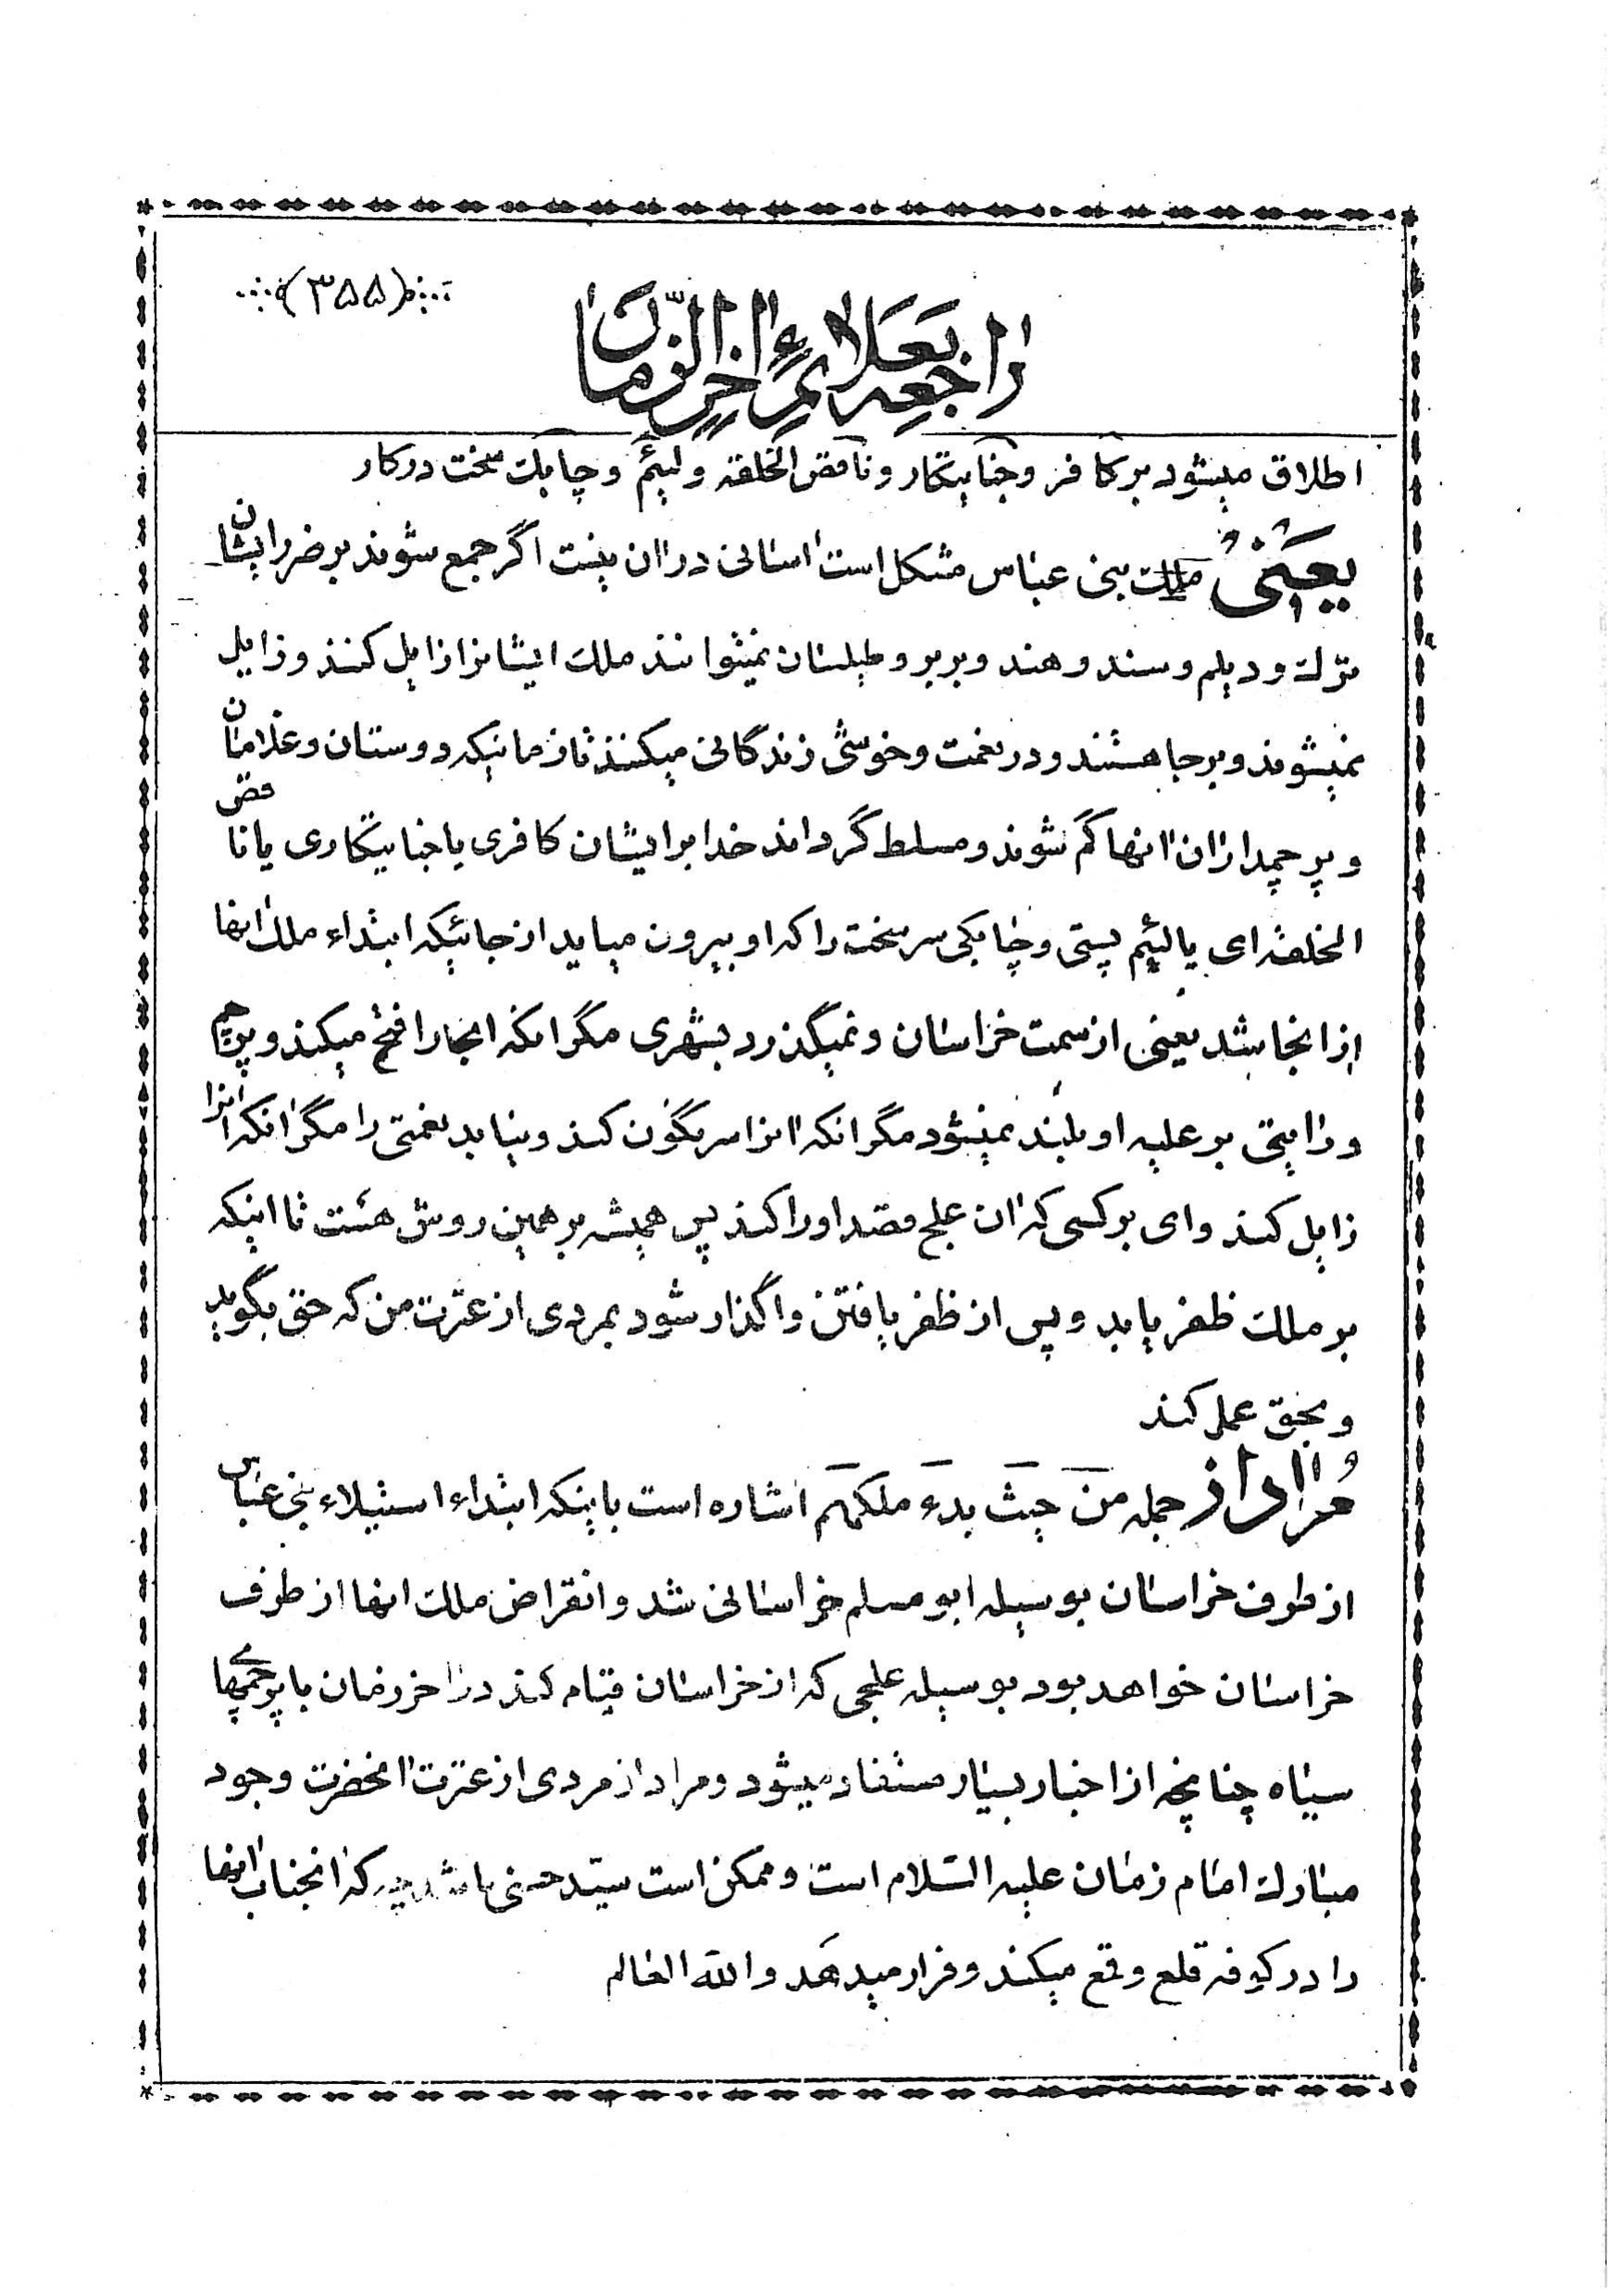 (۳۵۵)
راجعه بعلائم اخر الزمان
اطلاق میشود بر کافر و جنایتکار و ناقص الخلقه و لئیم و چابک سخت در کار
یعنی ملک بنی عباس مشکل است اسانی دران نیست اگر جمع شوند بر ضرر ایشان
ترک و دیلم و سند و هند و بربر و طیلسان نمیتوانند ملک ایشانرا زایل کنند و زایل
نمیشوند و برجا هستند و در نعمت و خوشی زندگانی میکنند تا زمانیکه دوستان و غلامان
و پرچمداران انها گم شوند و مسلط گرداند خدا بر ایشان کافری یا جنایتکاری یا ناقص
الخلقه ای یا لئیم پستی و چابکی سرسخت را که او بیرون میاید از جائیکه ابتداء ملک انها
از انجا شد یعنی از سمت خراسان و نمیگذرد بشهری مگر انکه انجا را فتح میکند و پرچم
و رایتی بر علیه او بلند نمیشود مگر انکه انرا سرنگون کند و نیابد نعمتی را مگر انکه انرا
زایل کند وای بر کسی که ان علج قصد او را کند پس همیشه بر همین روش هست تا اینکه
بر ملک ظفر یابد و پس از ظفر یافتن واگذار شود بمردی از عترت من که حق بگوید
و بحق عمل کند
مراد از جمله من حیث بدء ملکهم اشاره است باینکه ابتداء استیلاء بنی عباس
از طرف خراسان بوسیله ابو مسلم خراسانی شد و انقراض ملک انها از طرف
خراسان خواهد بود بوسیله علجی که از خراسان قیام کند در اخر زمان با پرچمهای
سیاه چنانچه از اخبار بسیار مستفاد میشود و مراد از مردی از عترت انحضرت وجود
مبارک امام زمان علیه السلام است و ممکن است سید حسنی باشد چه که انجناب انها
را در کوفه قلع و قمع میکند و فرار میدهد والله العالم